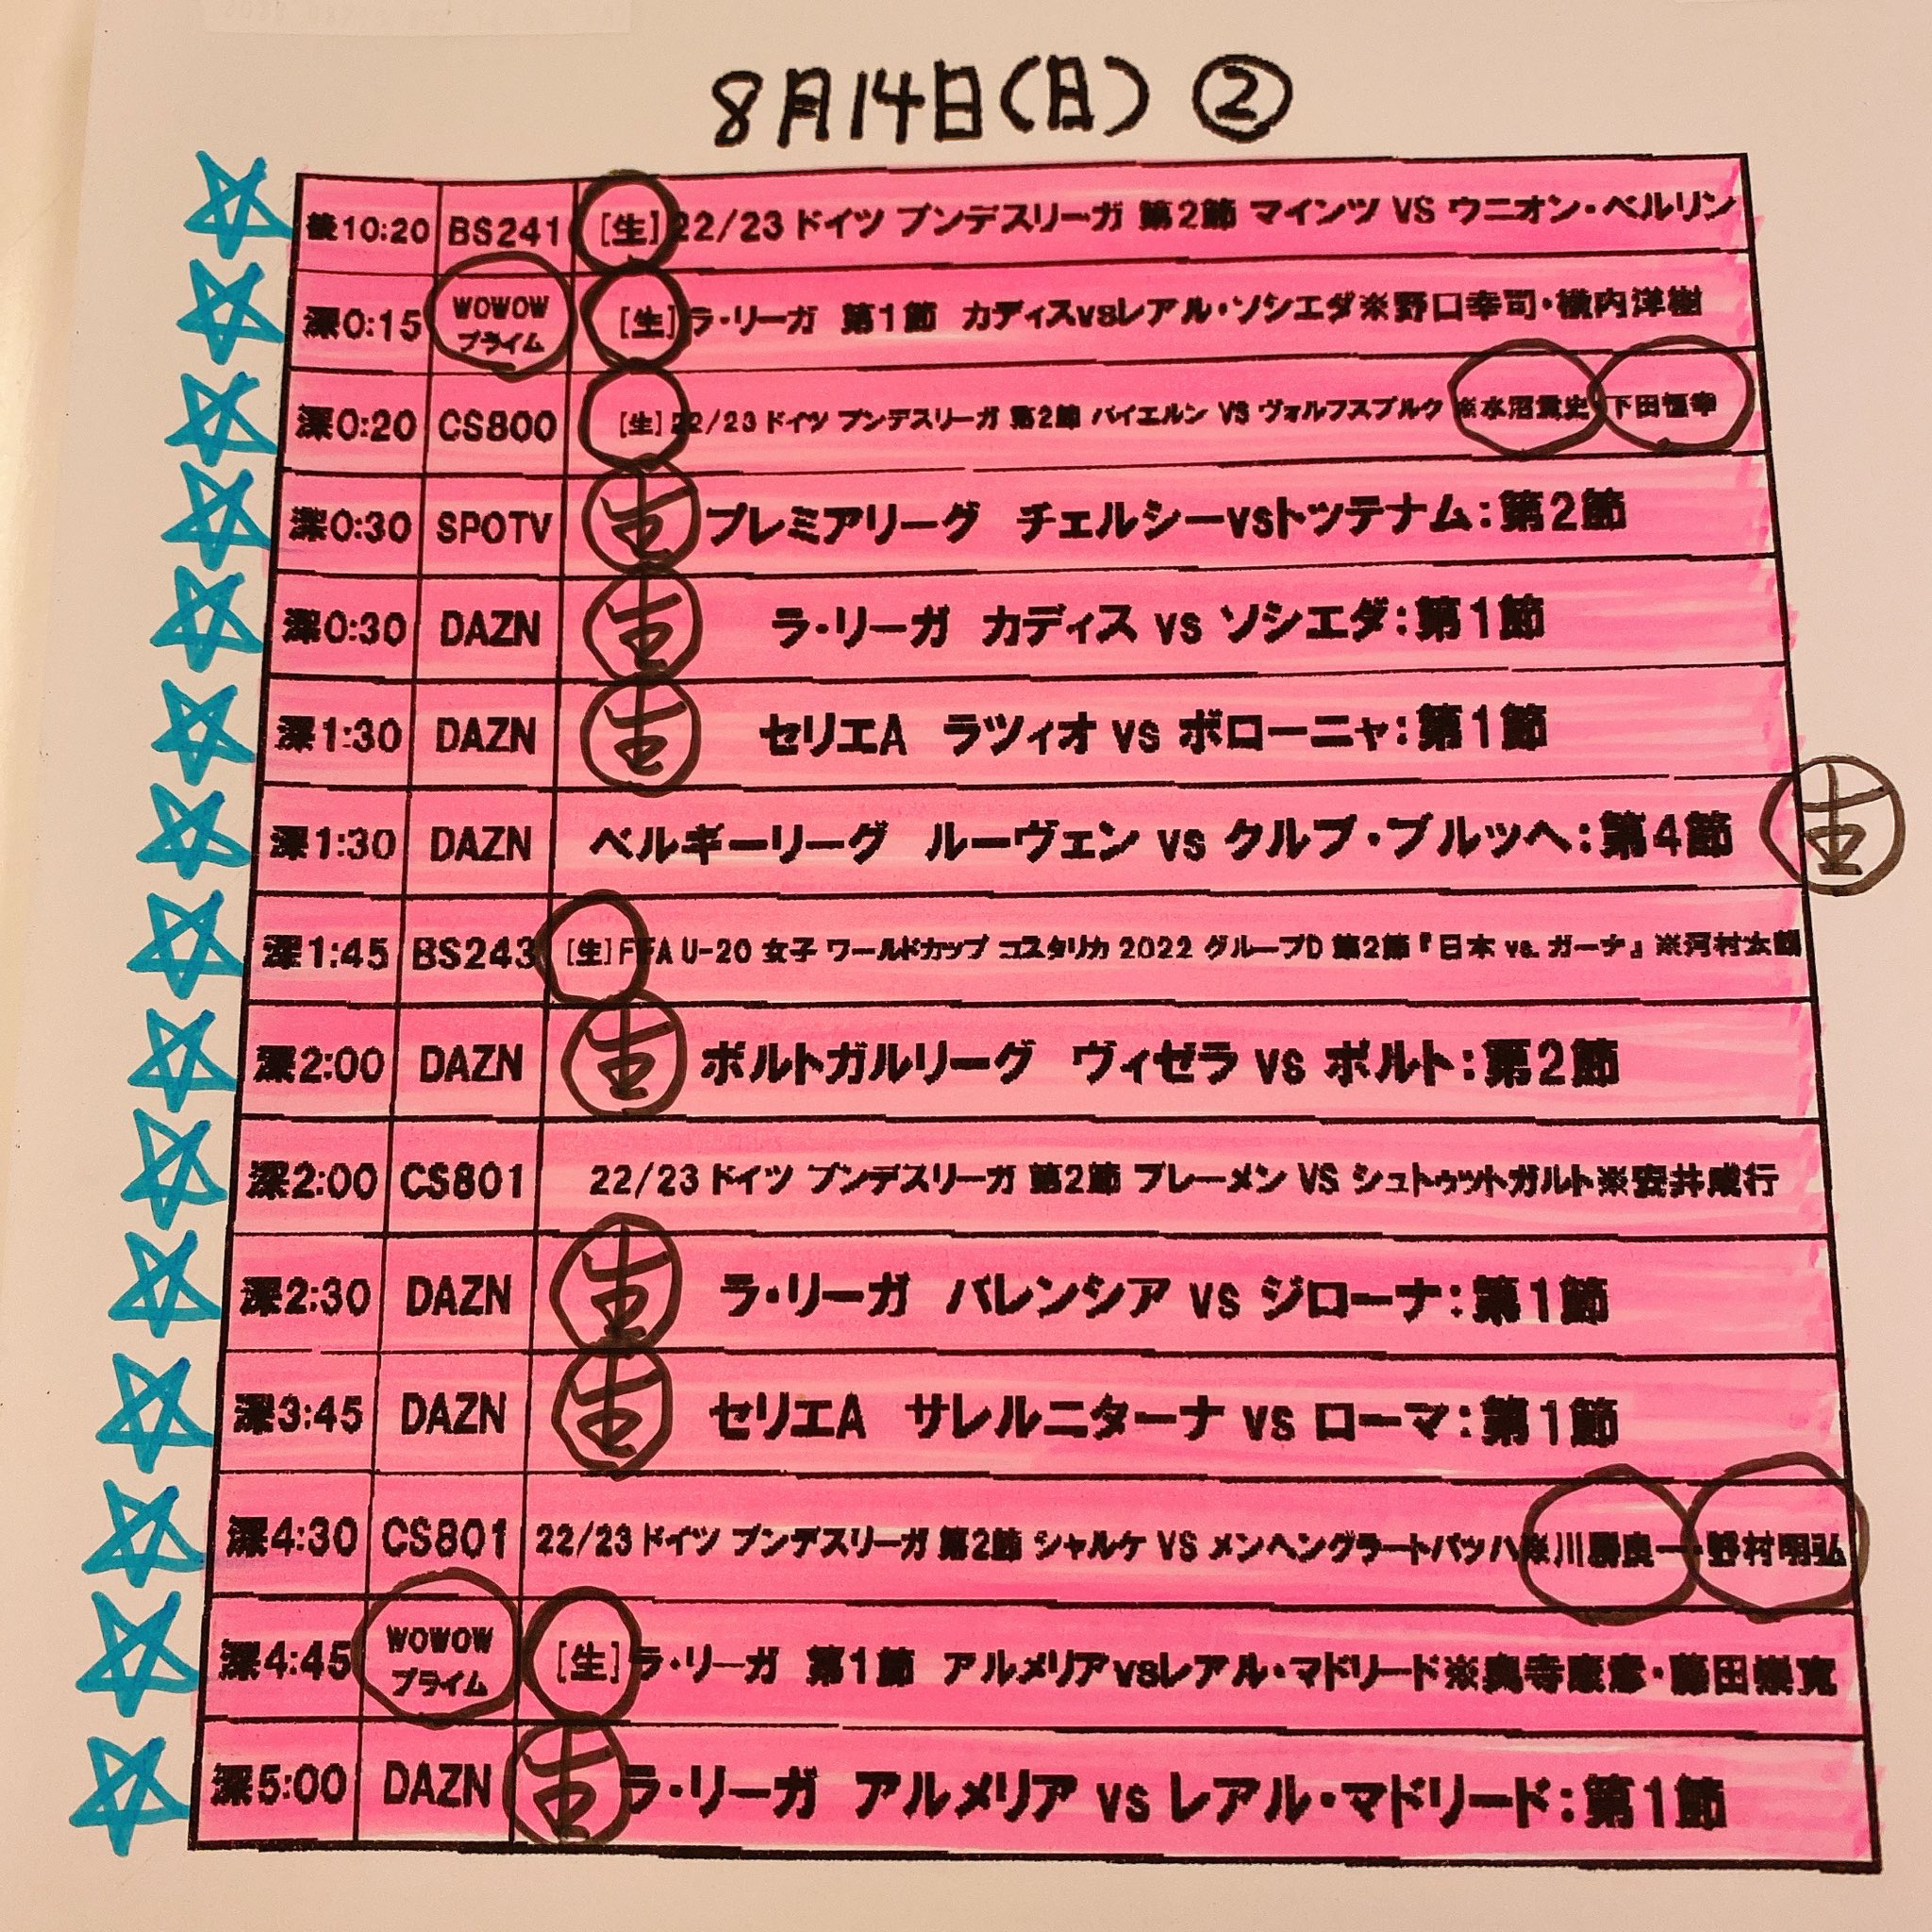 8月14日(日) ②
後10:20 BS241 [生] 22/23 ドイツ ブンデスリーガ 第2節 マインツ VS ウニオン・ベルリン
深0:15 WOWOWプライム [生]ラ・リーガ 第1節 カディスvsレアル・ソシエダ※野口幸司・横内洋樹
深0:20 CS800 [生] 22/23 ドイツ ブンデスリーガ 第2節 バイエルン VS ヴォルフスブルク ※水沼貴史 下田恒幸
深0:30 SPOTV 生 プレミアリーグ チェルシーvsトッテナム:第2節
深0:30 DAZN 生 ラ・リーガ カディス vs ソシエダ:第1節
深1:30 DAZN 生 セリエA ラツィオ vs ボローニャ:第1節
深1:30 DAZN ベルギーリーグ ルーヴェン vs クルブ・ブルッヘ:第4節 生
深1:45 BS243 [生]FIFA U-20 女子 ワールドカップ コスタリカ 2022 グループD 第2節『日本 vs. ガーナ』※河村太朗
深2:00 DAZN 生 ポルトガルリーグ ヴィゼラ vs ポルト:第2節
深2:00 CS801 22/23 ドイツ ブンデスリーガ 第2節 ブレーメン VS シュトゥットガルト※安井成行
深2:30 DAZN 生 ラ・リーガ バレンシア vs ジローナ:第1節
深3:45 DAZN 生 セリエA サレルニターナ vs ローマ:第1節
深4:30 CS801 22/23 ドイツ ブンデスリーガ 第2節 シャルケ VS メンヘングラートバッハ※川勝良一・野村明弘
深4:45 WOWOWプライム [生]ラ・リーガ 第1節 アルメリアvsレアル・マドリード※奥寺康彦・藤田崇寛
深5:00 DAZN 生 ラ・リーガ アルメリア vs レアル・マドリード:第1節